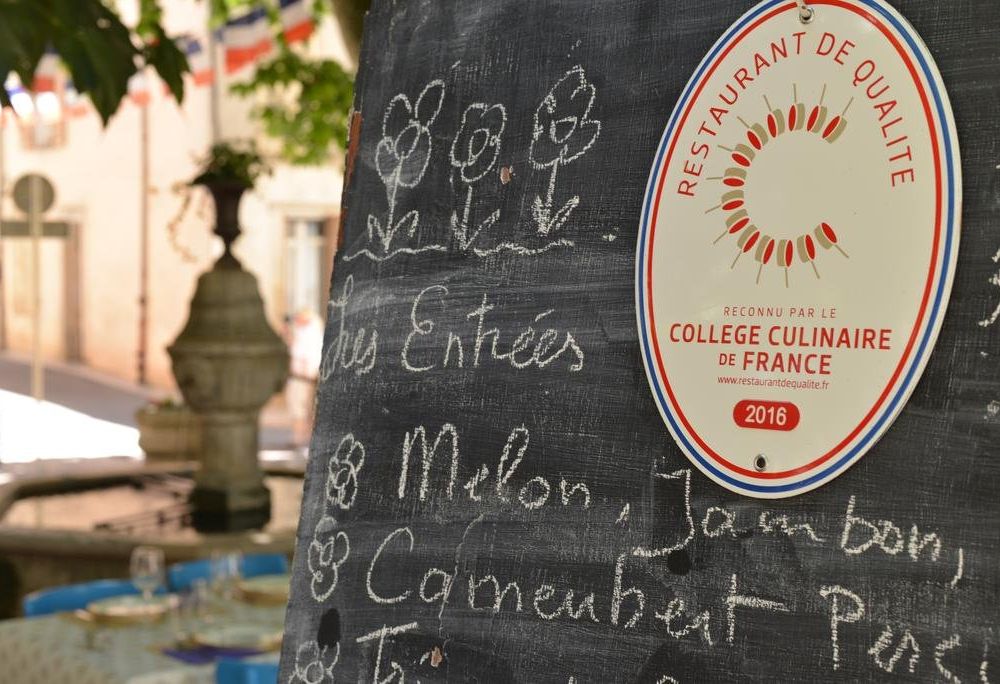 RESTAURANT DE QUALITE
RECONNU PAR LE
COLLEGE CULINAIRE
DE FRANCE
www.restaurantdequalite.fr
2016
Les Entrées
Melon, Jambon,
Camenbert